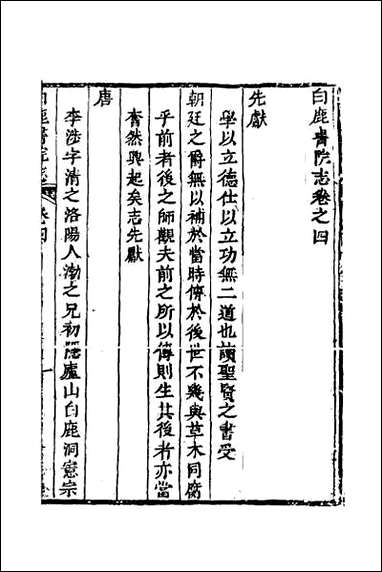 白鹿書院志卷之四
先獻
學以立德仕以立功無二道也讀聖賢之書受
朝廷之爵無以補於當時傳於後世不幾與草木同腐
乎前者後之師觀夫前之所以傳則生其後者亦當
奮然興起矣志先獻
唐
李涉字清之洛陽人渤之兄初隱廬山白鹿洞憲宗